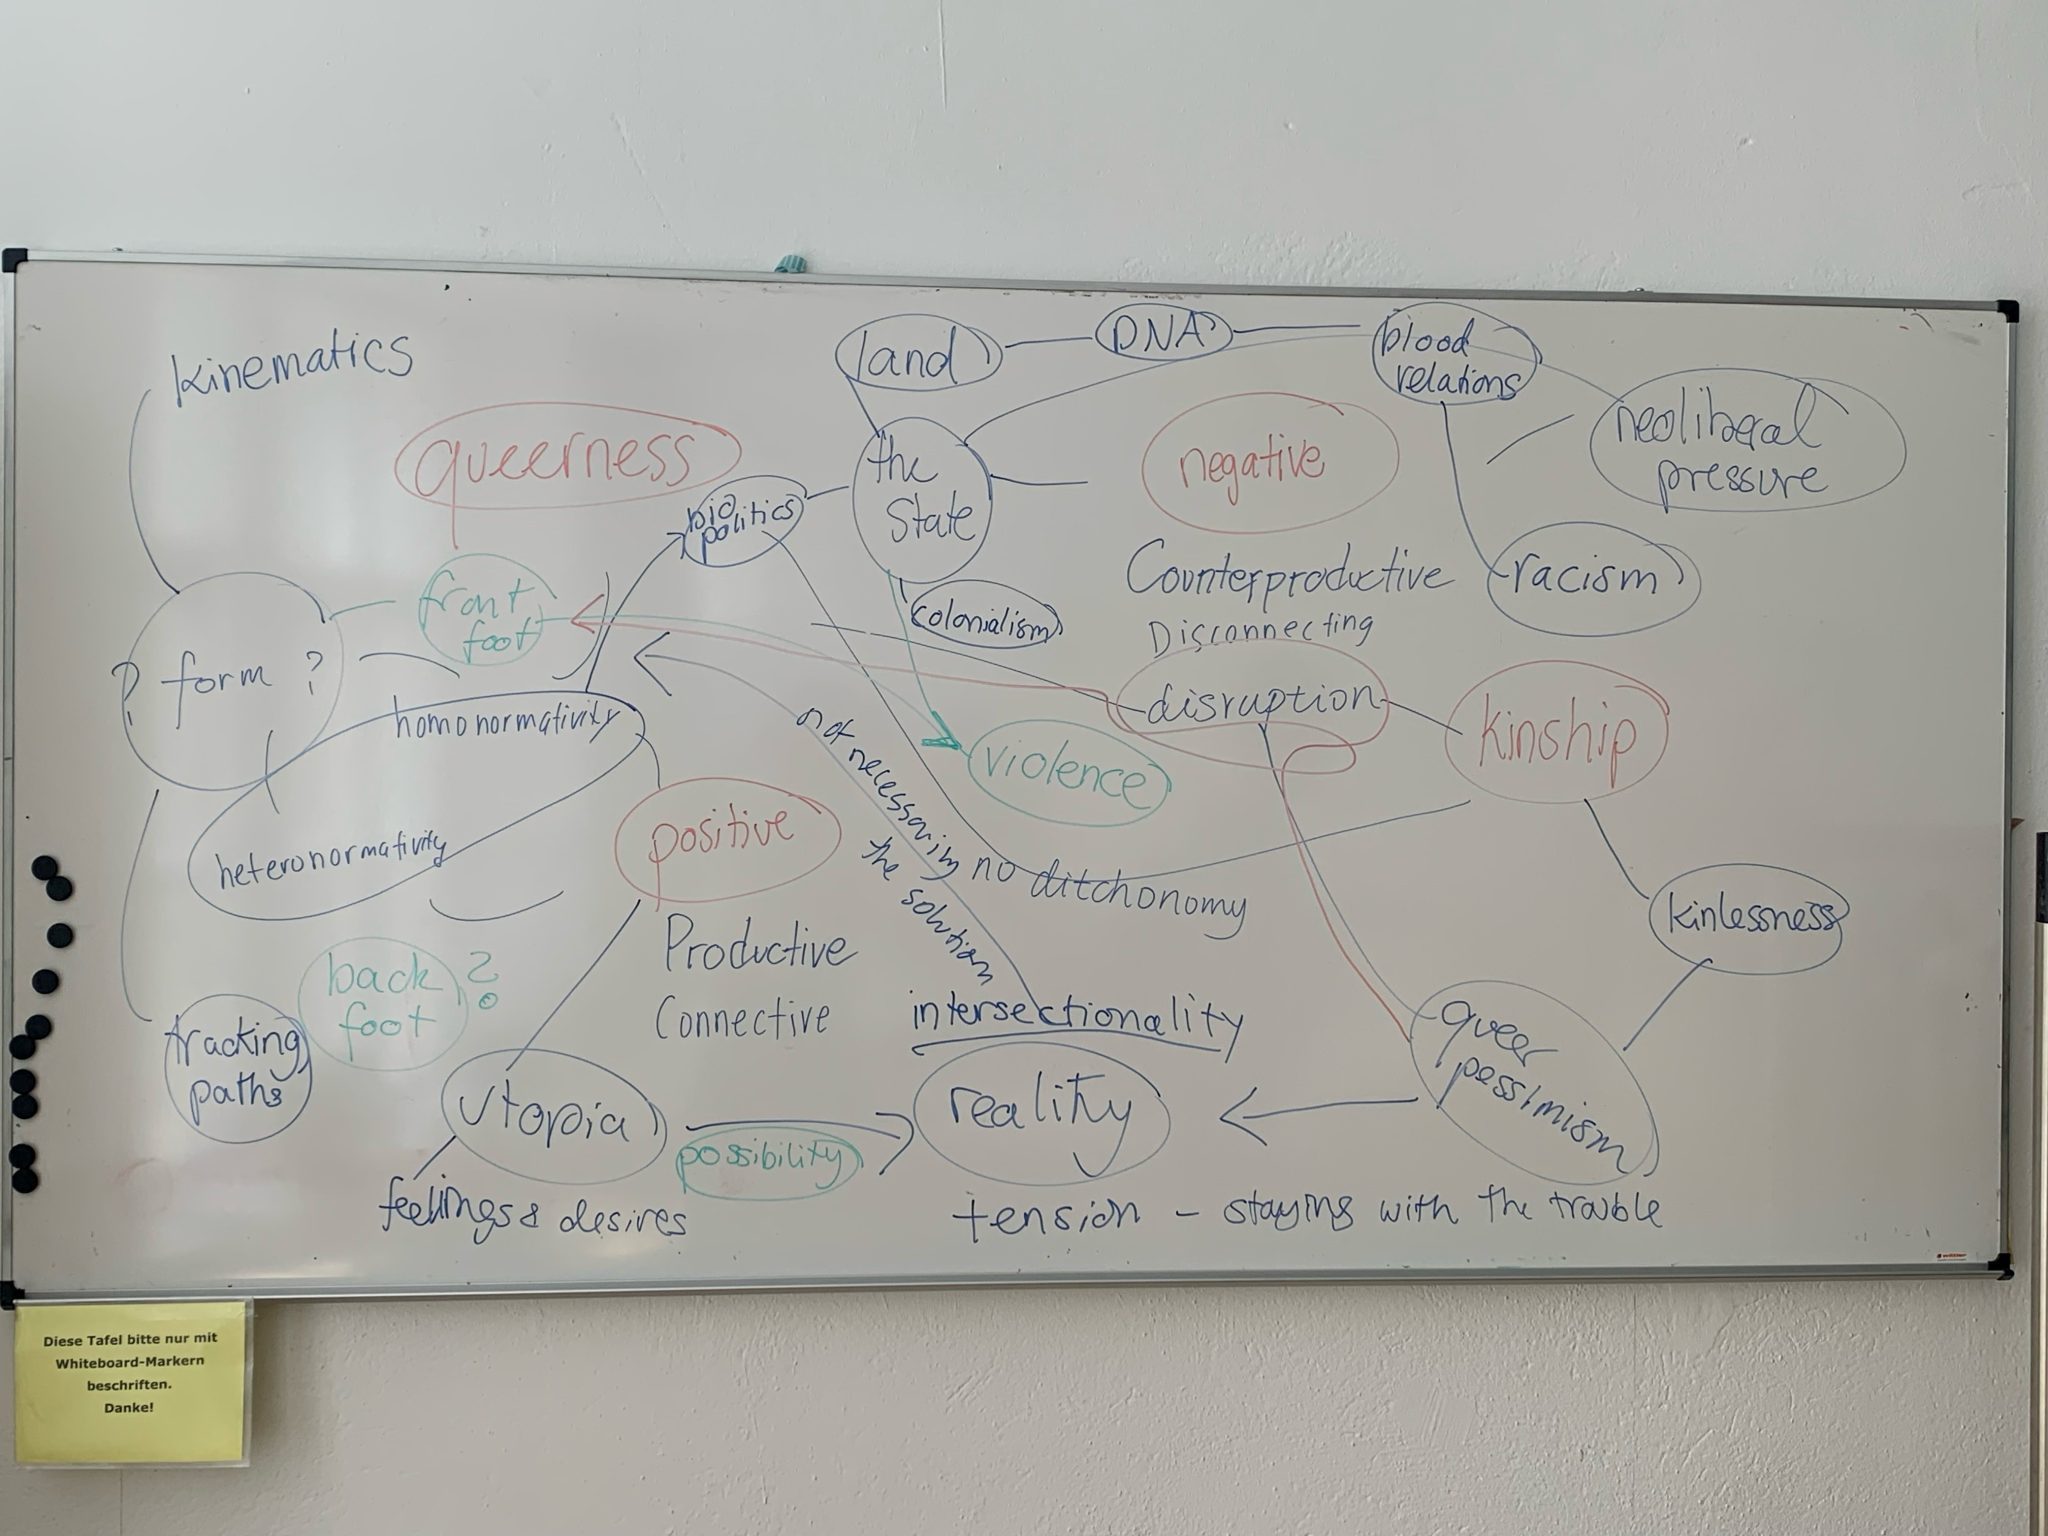 kinematics
queerness
front
foot
? form ?
homonormativity
heteronormativity
back
foot ?
tracking
paths
bio
politics
land
DNA
blood
relations
the
State
colonialism
negative
neoliberal
pressure
Counterproductive
Disconnecting
racism
disruption
kinship
violence
positive
not necessarily
the solution
no ditchonomy
kinlessness
Productive
Connective
intersectionality
queer
pessimism
utopia
possibility
reality
feelings & desires
tension - staying with the trouble
Diese Tafel bitte nur mit
Whiteboard-Markern
beschriften.
Danke!